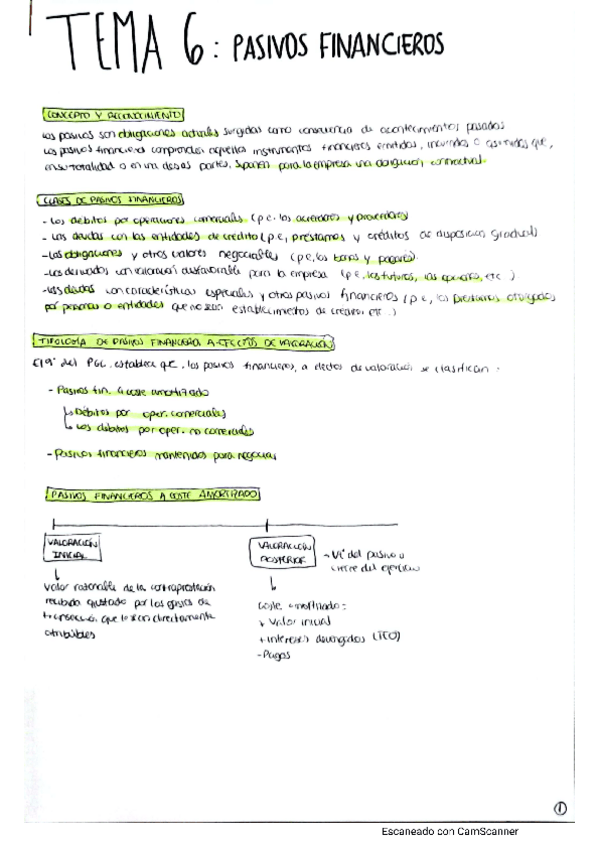 TEMA 6: PASIVOS FINANCIEROS
CONCEPTO Y RECONOCIMIENTO
Los pasivos son obligaciones actuales surgidas como consecuencia de acontecimientos pasados
Los pasivos financieros comprenden aquellos instrumentos financieros emitidos, incurridos o asumidos que,
en su totalidad o en una de sus partes, suponen para la empresa una obligación contractual.
CLASES DE PASIVOS FINANCIEROS
- Los débitos por operaciones comerciales (p.e. los acreedores y proveedores)
- Las deudas con las entidades de crédito (p.e, préstamos y créditos de disposición gradual)
- Las obligaciones y otros valores negociables (p.e, los bonos y pagarés)
- Los derivados con valoración desfavorable para la empresa (p.e, los futuros, las opciones, etc.)
- Las deudas con características especiales y otros pasivos financieros (p.e, los préstamos otorgados
por personas o entidades que no sean establecimientos de crédito etc.)
TIPOLOGÍA DE PASIVOS FINANCIEROS A EFECTOS DE VALORACIÓN
del PGC. establece que, los pasivos financieros, a efectos de valoración se clasifican:
- Pasivos fin. a coste amortizado
↳ Débitos por oper. comerciales
↳ Los débitos por oper. no comerciales
- Pasivos financieros mantenidos para negociar
PASIVOS FINANCIEROS A COSTE AMORTIZADO
VALORACIÓN
INICIAL
Valor razonable de la contraprestación
recibida ajustado por los gastos de
transacción que le sean directamente
atribuibles
VALORACIÓN
POSTERIOR
→ Vt° del pasivo o
cierre del ejercicio
Coste amortizado:
+ Valor inicial
+ Intereses devengados (TIE)
- Pagos
1
Escaneado con CamScanner